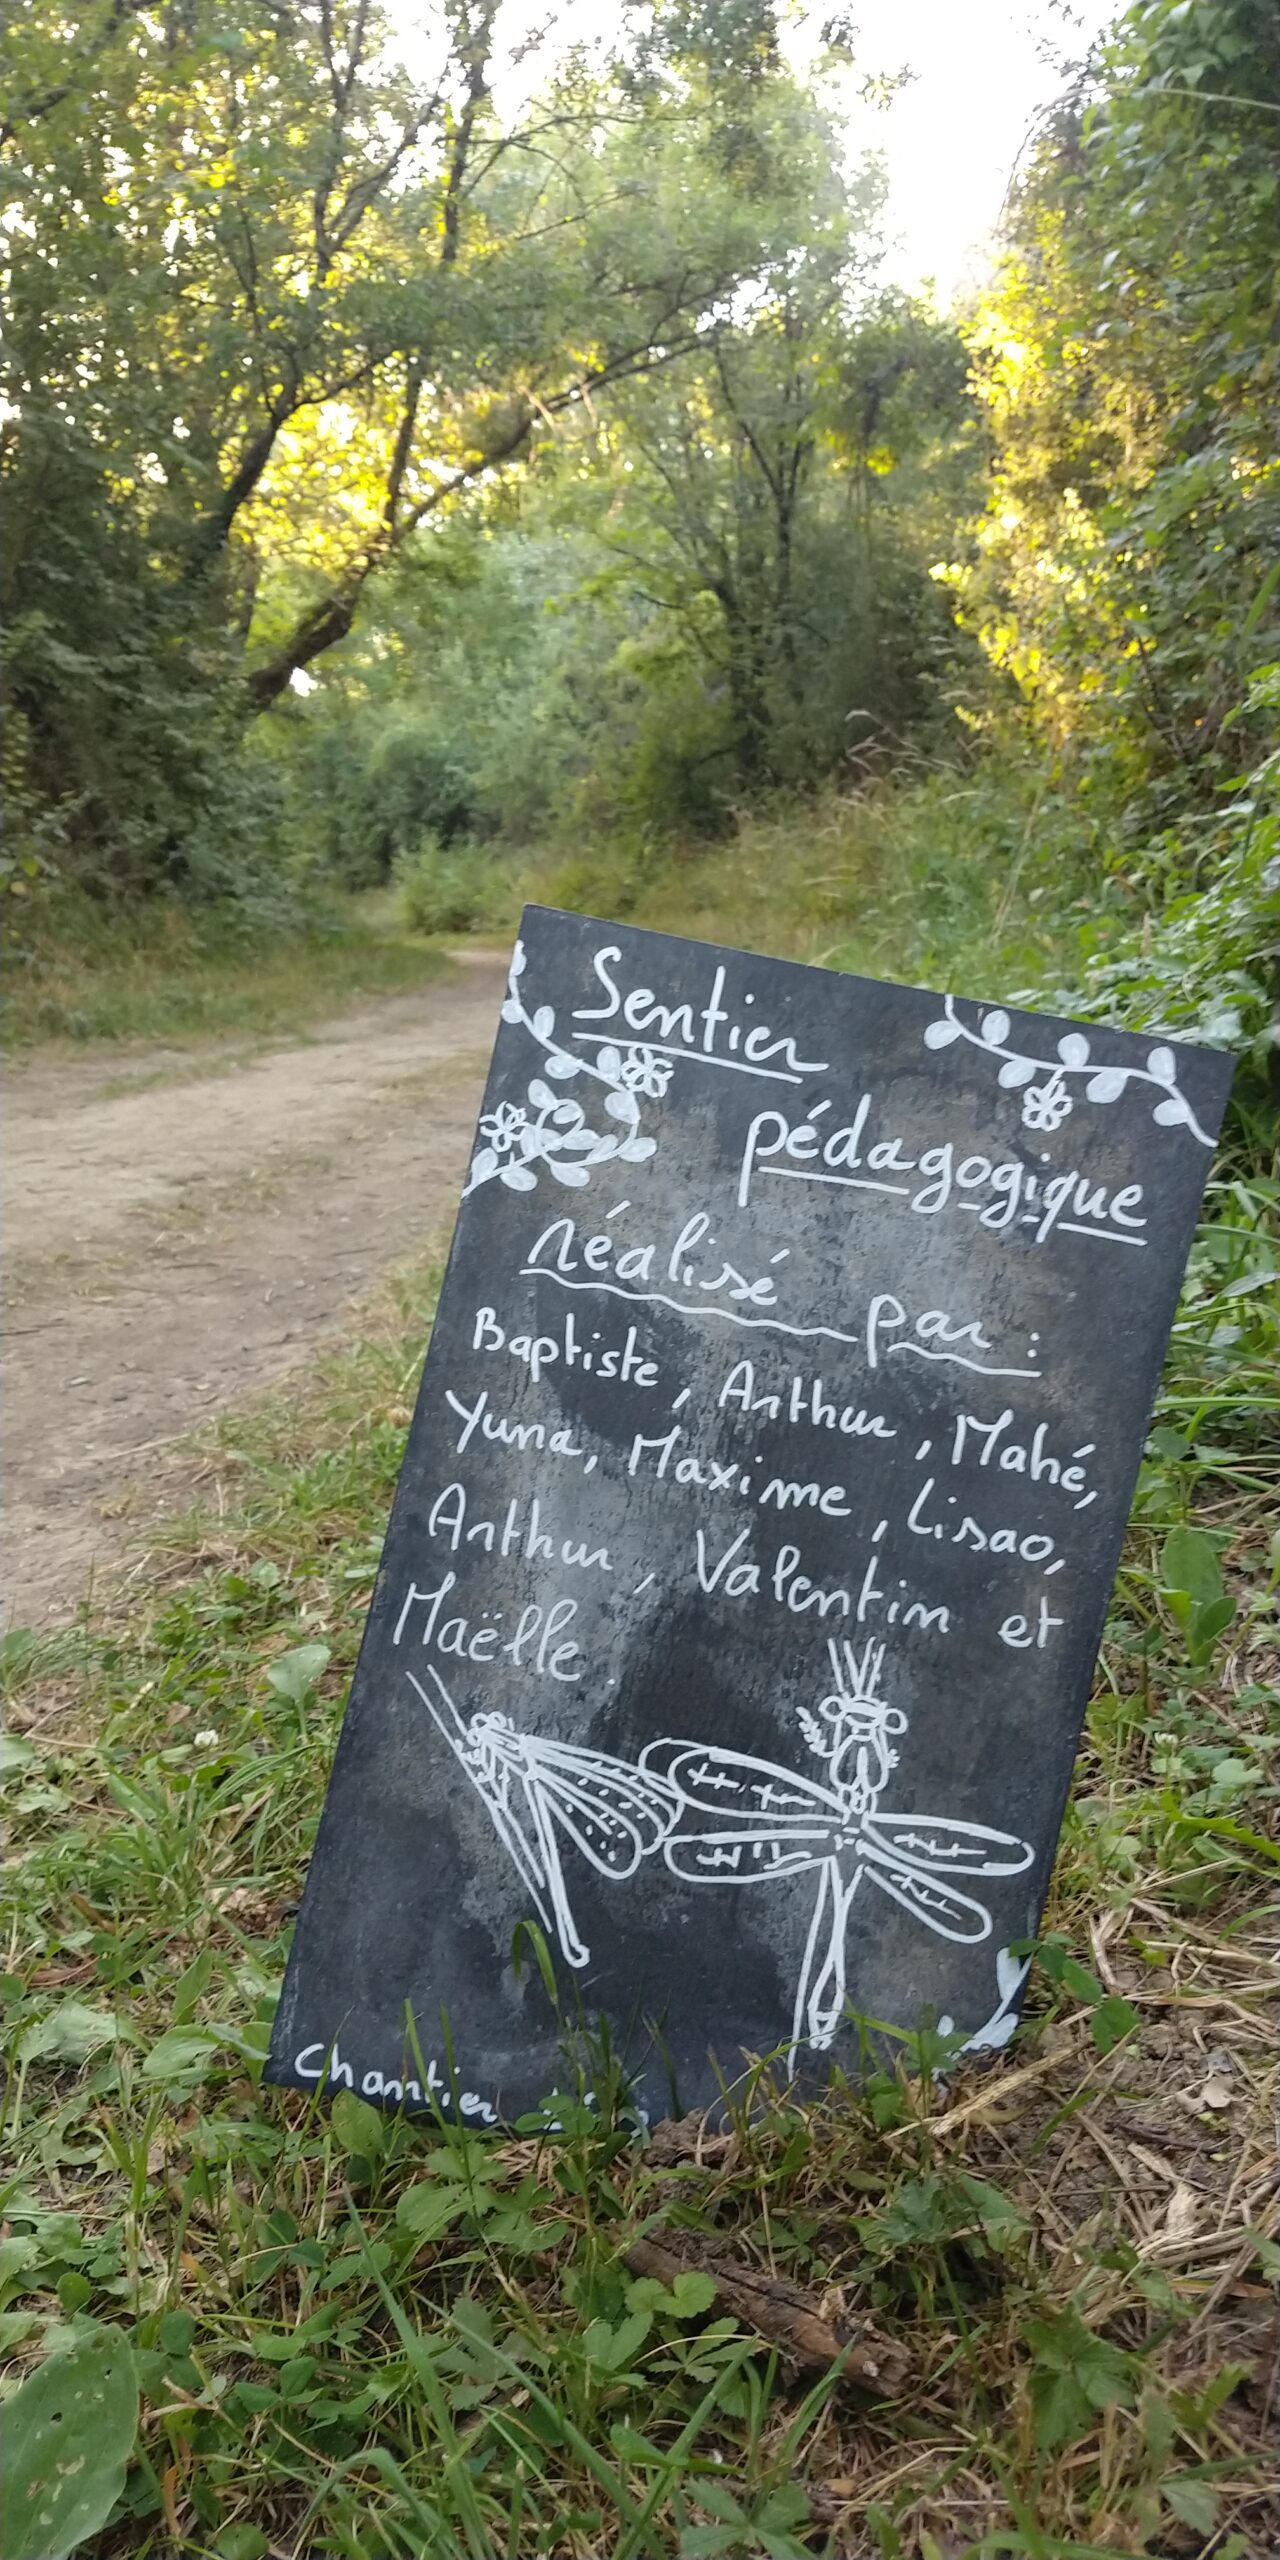 Sentier
pédagogique
réalisé par :
Baptiste, Arthur, Mahé,
Yuna, Maxime, Lisao,
Arthur, Valentin et
Maëlle.
Chantier